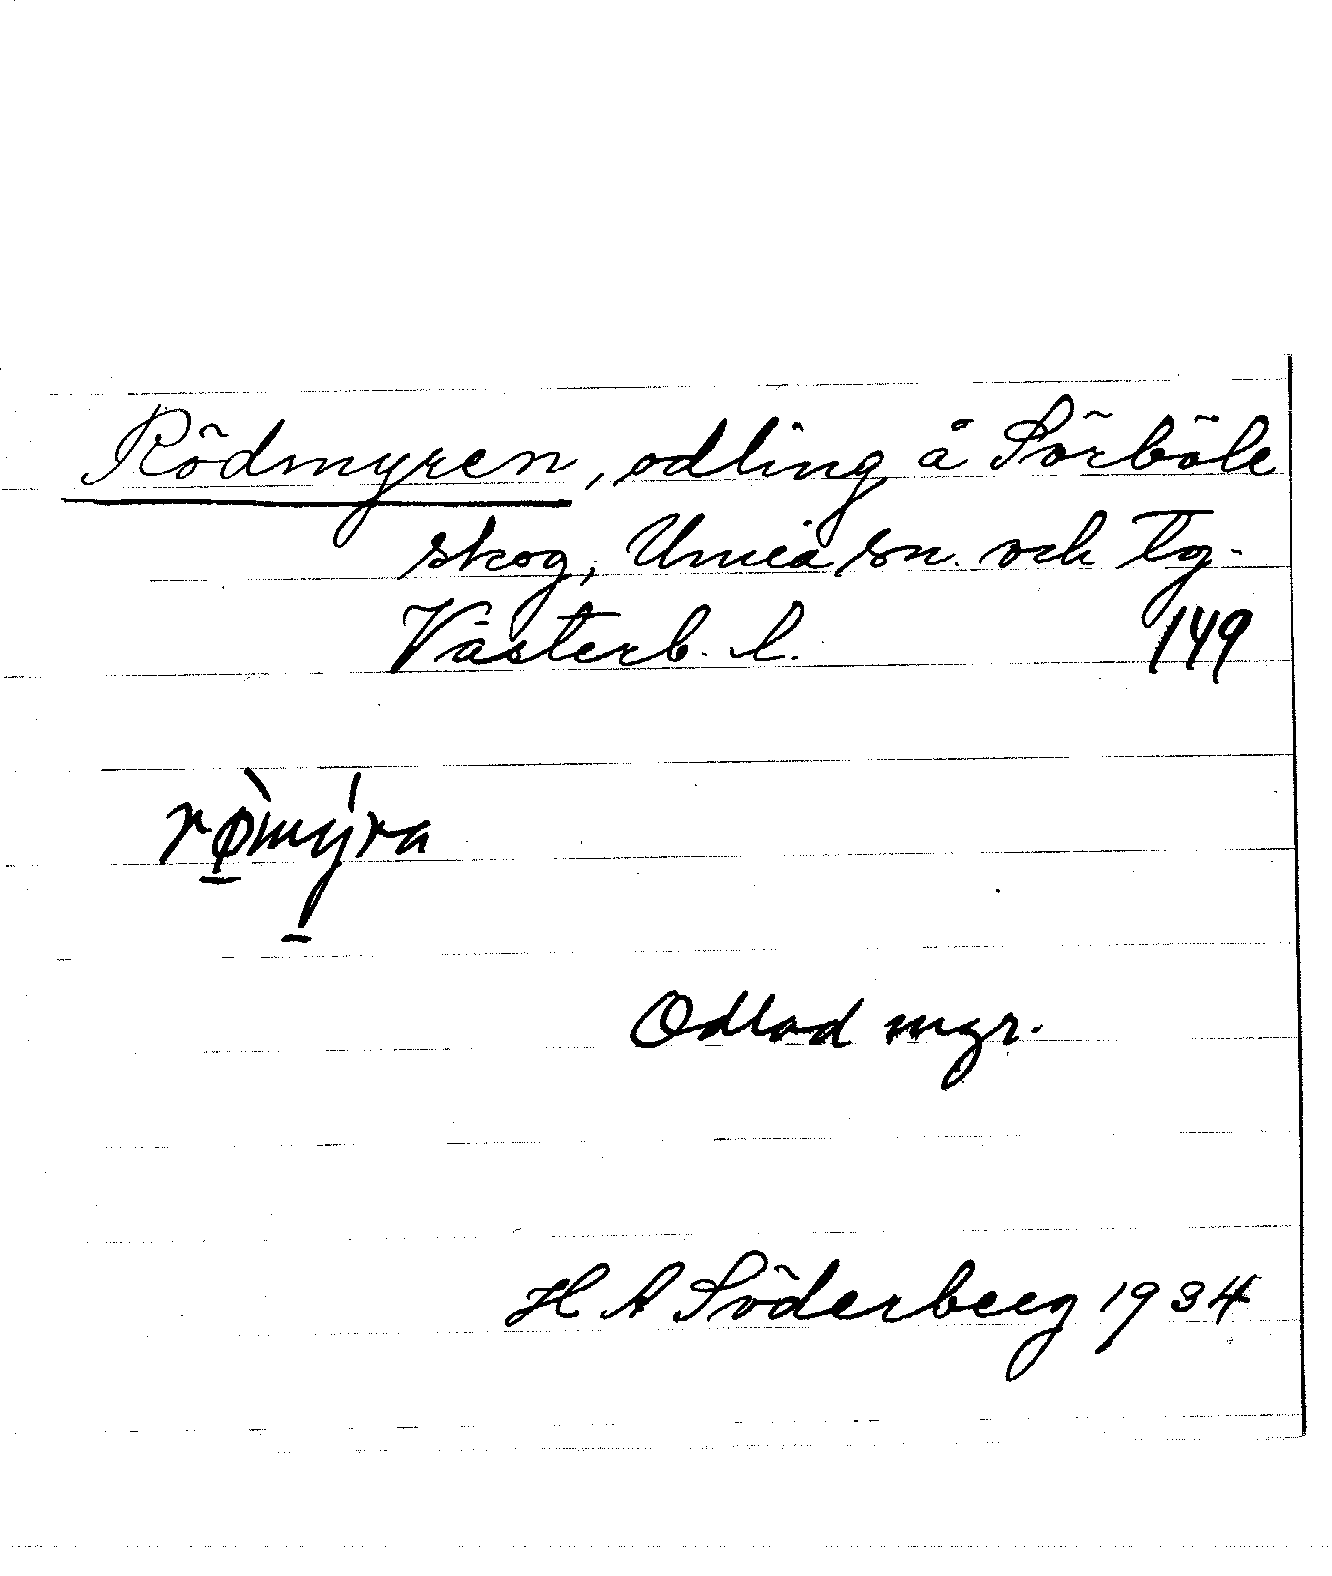 Rödmyren, odling å Sörböle
skog, Umeå sn. och tg.
Västerb. l. 149
rø̱̀mý̱ra
Odlad mgr.
H A Söderberg 1934